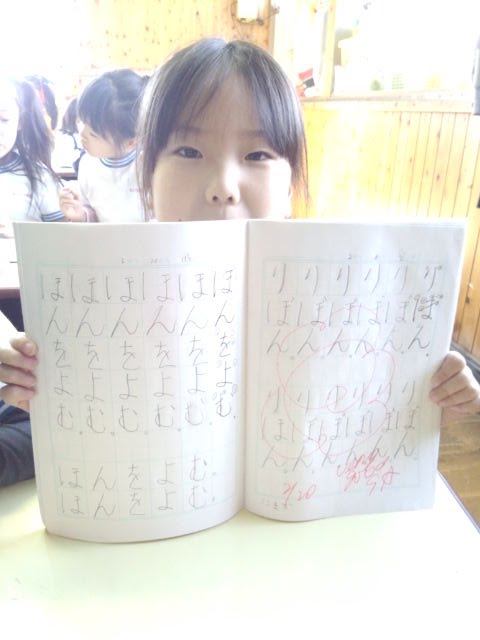 りぼん。りぼん。
りぼん。りぼん。
りぼん。りぼん。
りぼん。りぼん。
りぼん。りぼん。
りぼん。りぼん。
2/20
ほんをよむ。
ほんをよむ。
ほんをよむ。
ほんをよむ。
ほんをよむ。
ほんをよむ。
ほんをよむ。
ほんをよむ。